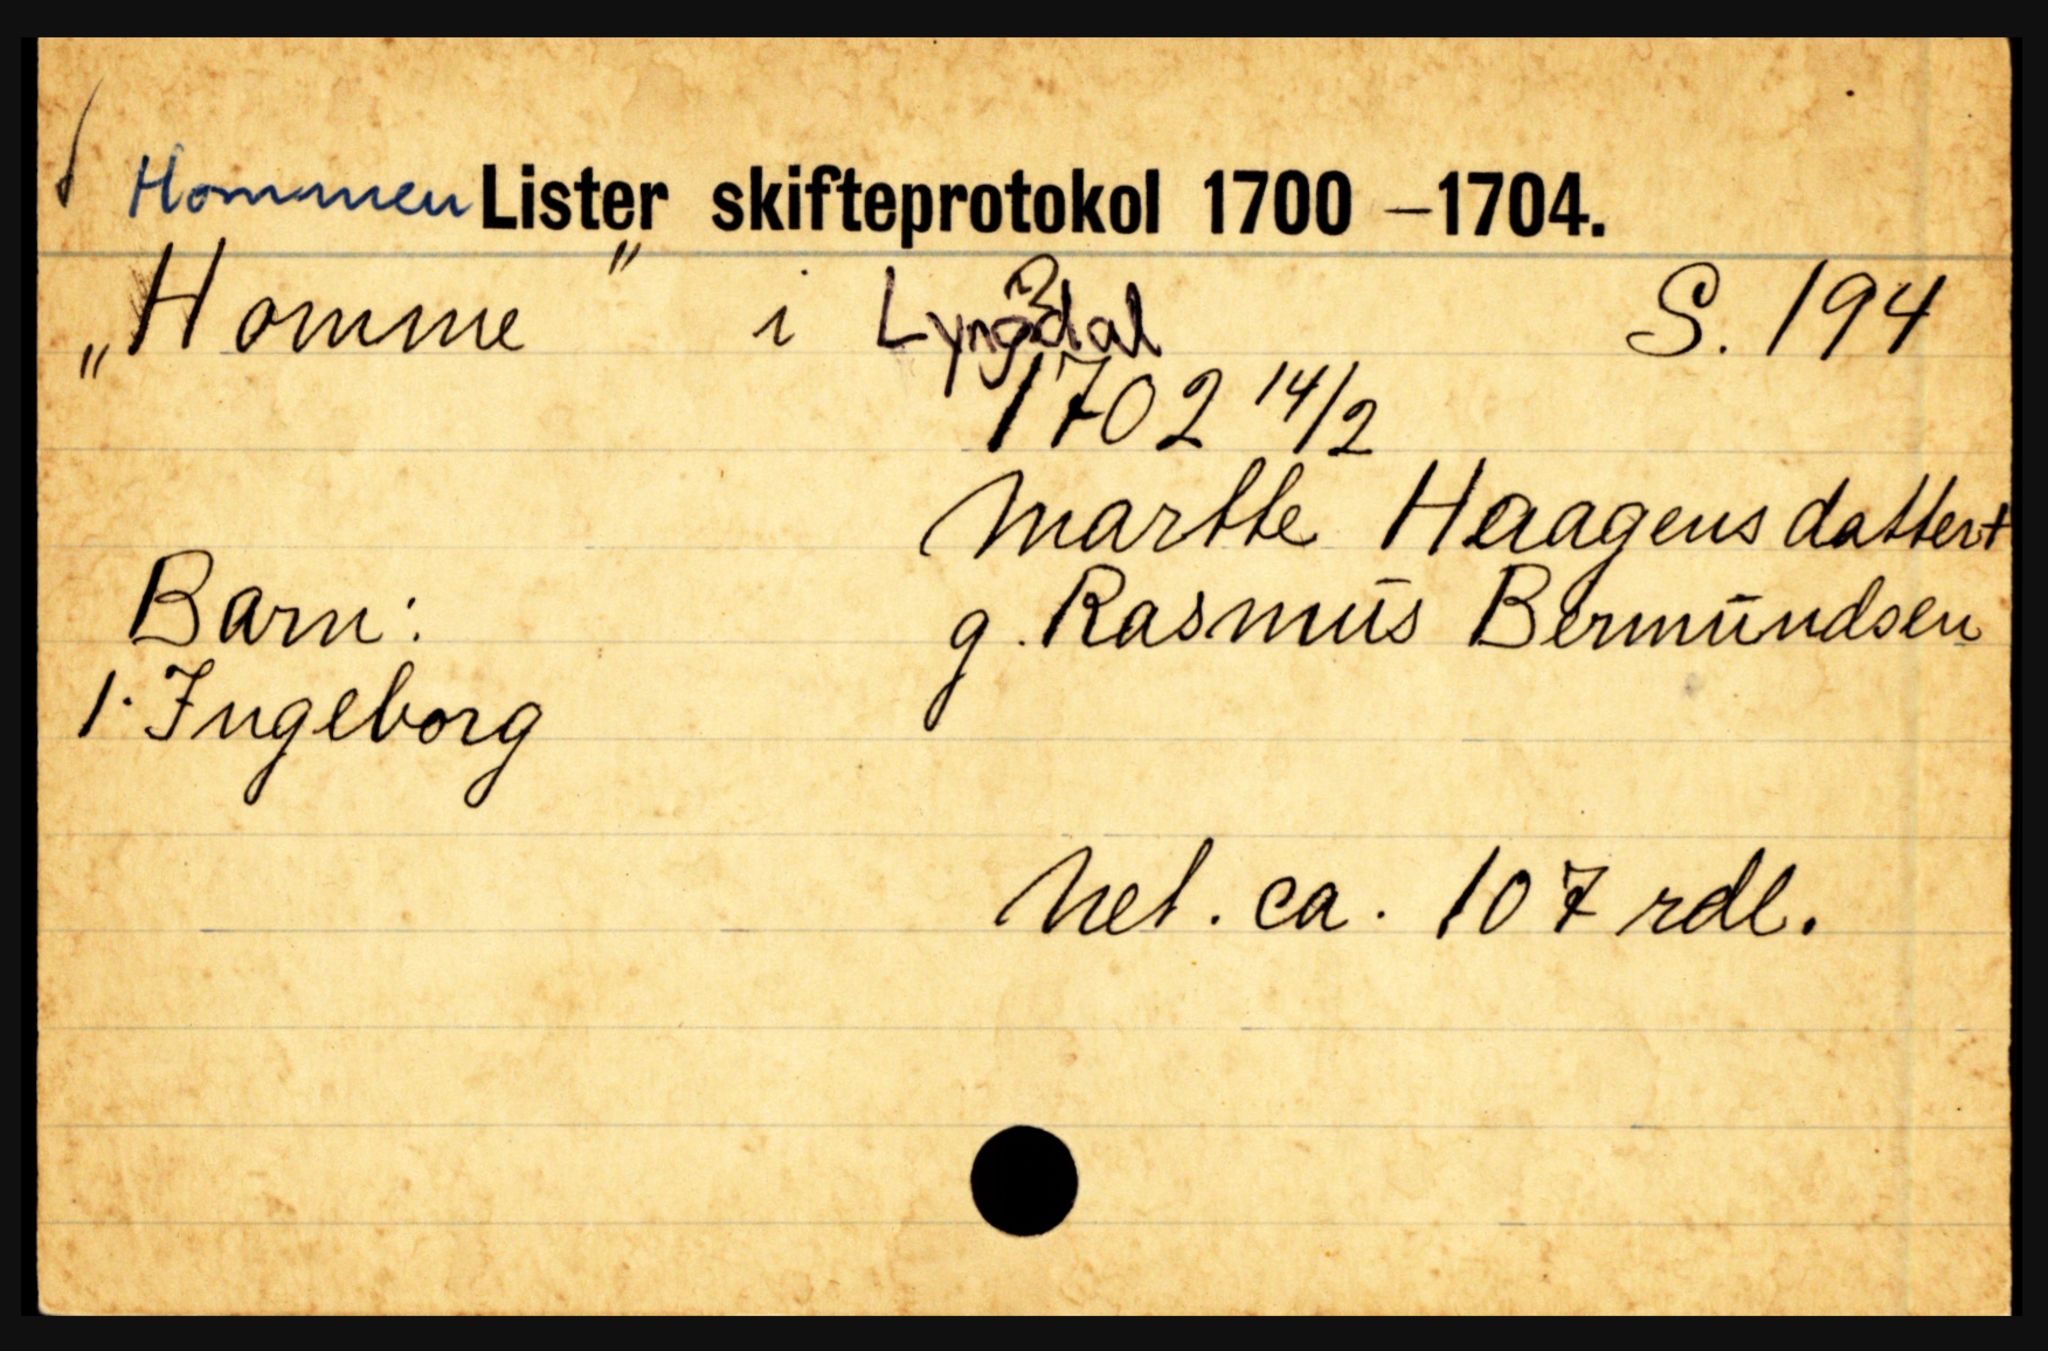 Hommen Lister skifteprotokol 1700 – 1704.
„Homme" i Lyngdal S. 194
1702 14/2
Martte Haagensdatter +
Barn: g. Rasmus Bermundsen
1. Ingeborg
Net. ca. 107 rdl.